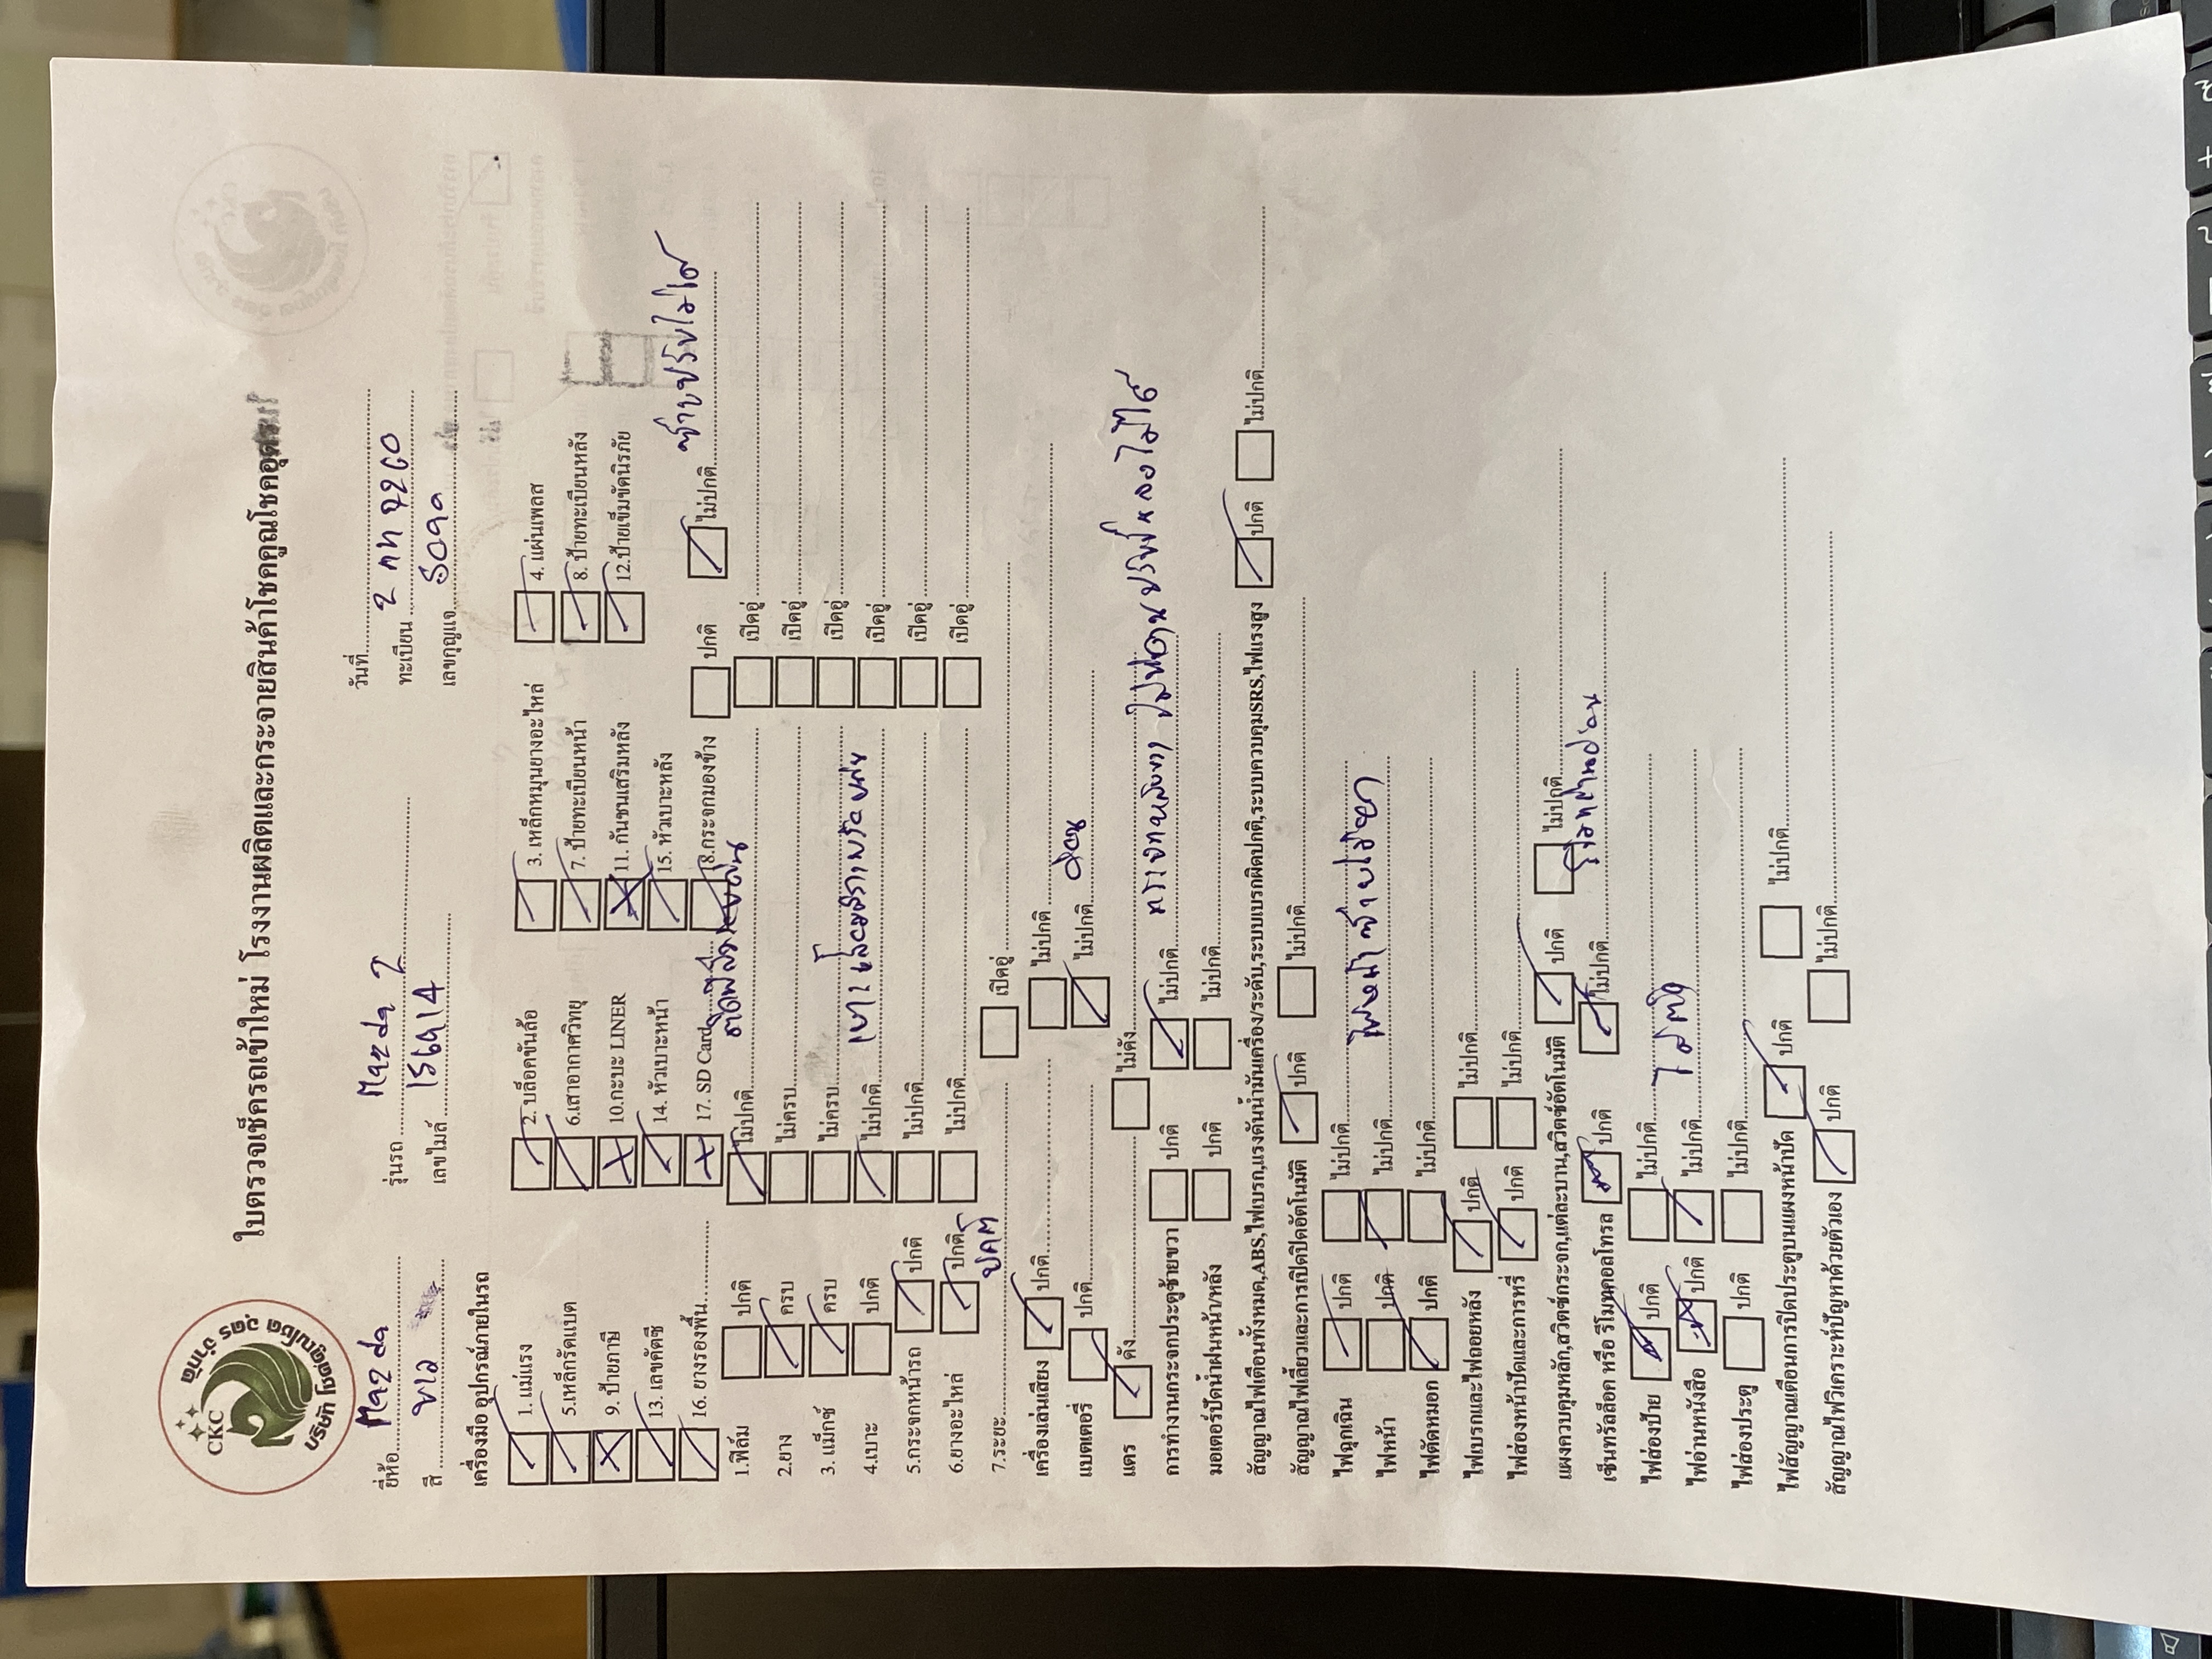 ใบตรวจเช็ครถเข้าใหม่ โรงงานผลิตและกระจายสินค้าโชคคูณโชคอุดร
CKC
บริษัท โชคคูณโชค อุดร จำกัด
วันที่
ยี่ห้อ Mazda รุ่นรถ Mazda 2 ทะเบียน 2 กท 7260
สี ขาว เลขไมล์ 156914 เลขกุญแจ
เครื่องมือ อุปกรณ์ภายในรถ
1. แม่แรง 2. บล็อคขันล้อ 3. เหล็กหมุนยางอะไหล่ 4. แผ่นเพลส
5.เหล็กรัดแบต 6.เสาอากาศวิทยุ 7. ป้ายทะเบียนหน้า 8. ป้ายทะเบียนหลัง
9. ป้ายภาษี 10.กะบะ LINER 11. กันชนเสริมหลัง 12.ป้ายเข็มขัดนิรภัย
13. เลขตัดซี 14. หัวเบาะหน้า 15. หัวเบาะหลัง
16. ยางรองพื้น 17. SD Card 18.กระจกมองข้าง ปกติ ไม่ปกติ ซ้ายปรับไม่ได้
1.ฟิล์ม ปกติ ไม่ปกติ เปิดอู่
2.ยาง ครบ ไม่ครบ เปิดอู่
3. แม็กซ์ ครบ ไม่ครบ เปิดอู่
4.เบาะ ปกติ ไม่ปกติ เปิดอู่
5.กระจกหน้ารถ ปกติ ไม่ปกติ เปิดอู่
6.ยางอะไหล่ ปกติ ไม่ปกติ เปิดอู่
7.ระยะ ปกติ เปิดอู่
เครื่องเล่นเสียง ปกติ ไม่ปกติ
แบตเตอรี่ ปกติ ไม่ปกติ อ่อน
แตร ดัง ไม่ดัง
การทำงานกระจกประตูซ้ายขวา ปกติ ไม่ปกติ
มอเตอร์ปัดน้ำฝนหน้า/หลัง ปกติ ไม่ปกติ
สัญญาณไฟเตือนทั้งหมด,ABS,ไฟเบรก,แรงดันน้ำมันเครื่อง/ระดับ,ระบบเบรกผิดปกติ,ระบบควบคุมSRS,ไฟแรงสูง ปกติ ไม่ปกติ
สัญญาณไฟเลี้ยวและการเปิดปิดอัตโนมัติ ปกติ ไม่ปกติ
ไฟฉุกเฉิน ปกติ ไม่ปกติ
ไฟหน้า ปกติ ไม่ปกติ ไฟหน้าซ้ายไม่ติด
ไฟตัดหมอก ปกติ ไม่ปกติ
ไฟเบรกและไฟถอยหลัง ปกติ ไม่ปกติ
ไฟส่องหน้าปัดและการที่ ปกติ ไม่ปกติ
แผงควบคุมหลัก,สวิตซ์กระจก,แต่ละบาน,สวิตซ์อัตโนมัติ ปกติ ไม่ปกติ
เซ็นทรัลล็อค หรือ รีโมทคอลโทรล ปกติ ไม่ปกติ รีโมทถ่านอ่อน
ไฟส่องป้าย ปกติ ไม่ปกติ
ไฟอ่านหนังสือ ปกติ ไม่ปกติ ไม่ติด
ไฟส่องประตู ปกติ ไม่ปกติ
ไฟสัญญาณเตือนการปิดประตูบนแผงหน้าปัด ปกติ ไม่ปกติ
สัญญาณไฟวิเคราะห์ปัญหาด้วยตัวเอง ปกติ ไม่ปกติ